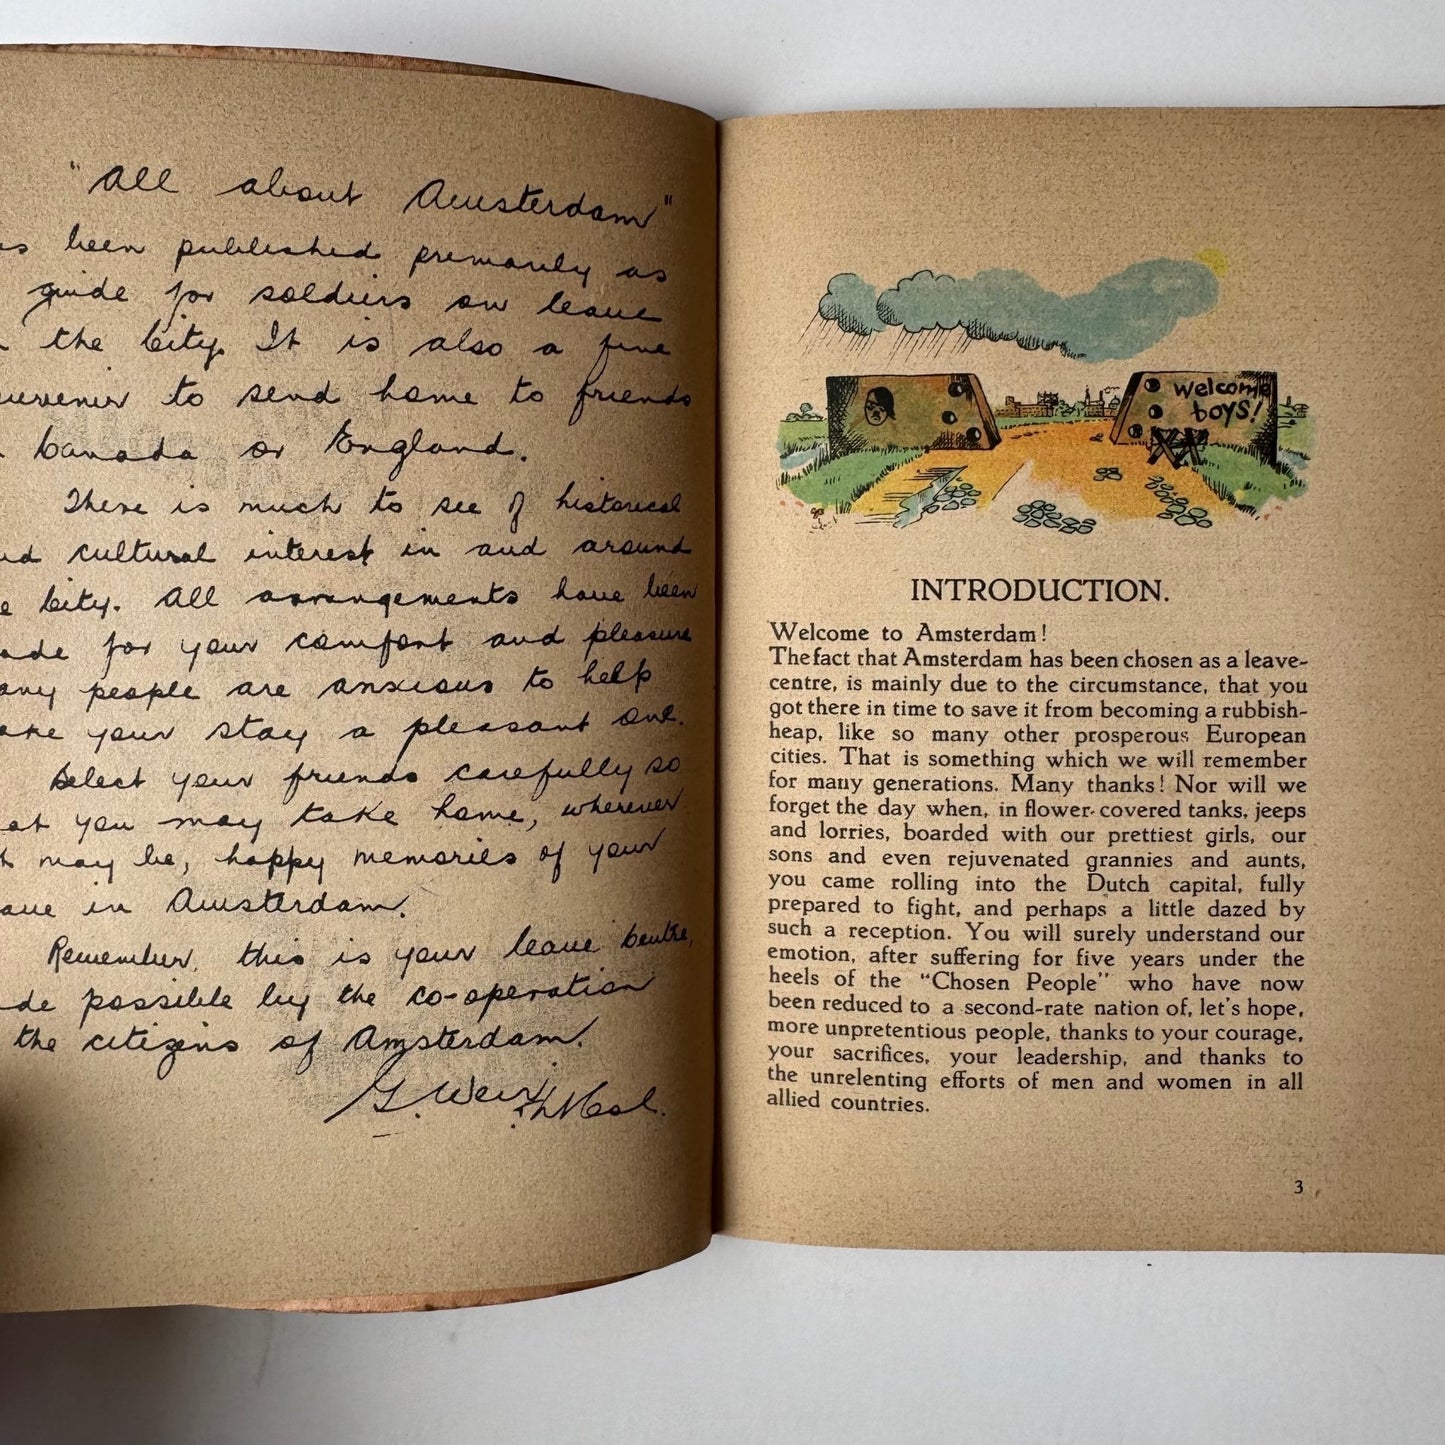 "All about Amsterdam"
been published primarily as
guide for soldiers on leave
the City. It is also a fine
to send home to friends
Canada or England.
There is much to see of historical
cultural interest in and around
City. All arrangements have been
for your comfort and pleasure
people are anxious to help
your stay a pleasant one.
Select your friends carefully so
you may take home, wherever
may be, happy memories of your
in Amsterdam.
Remember, this is your leave Centre,
possible by the co-operation
the citizens of Amsterdam.
G. Weir
welcome
boys!
INTRODUCTION.
Welcome to Amsterdam!
The fact that Amsterdam has been chosen as a leave-
centre, is mainly due to the circumstance, that you
got there in time to save it from becoming a rubbish-
heap, like so many other prosperous European
cities. That is something which we will remember
for many generations. Many thanks! Nor will we
forget the day when, in flower-covered tanks, jeeps
and lorries, boarded with our prettiest girls, our
sons and even rejuvenated grannies and aunts,
you came rolling into the Dutch capital, fully
prepared to fight, and perhaps a little dazed by
such a reception. You will surely understand our
emotion, after suffering for five years under the
heels of the "Chosen People" who have now
been reduced to a second-rate nation of, let's hope,
more unpretentious people, thanks to your courage,
your sacrifices, your leadership, and thanks to
the unrelenting efforts of men and women in all
allied countries.
3